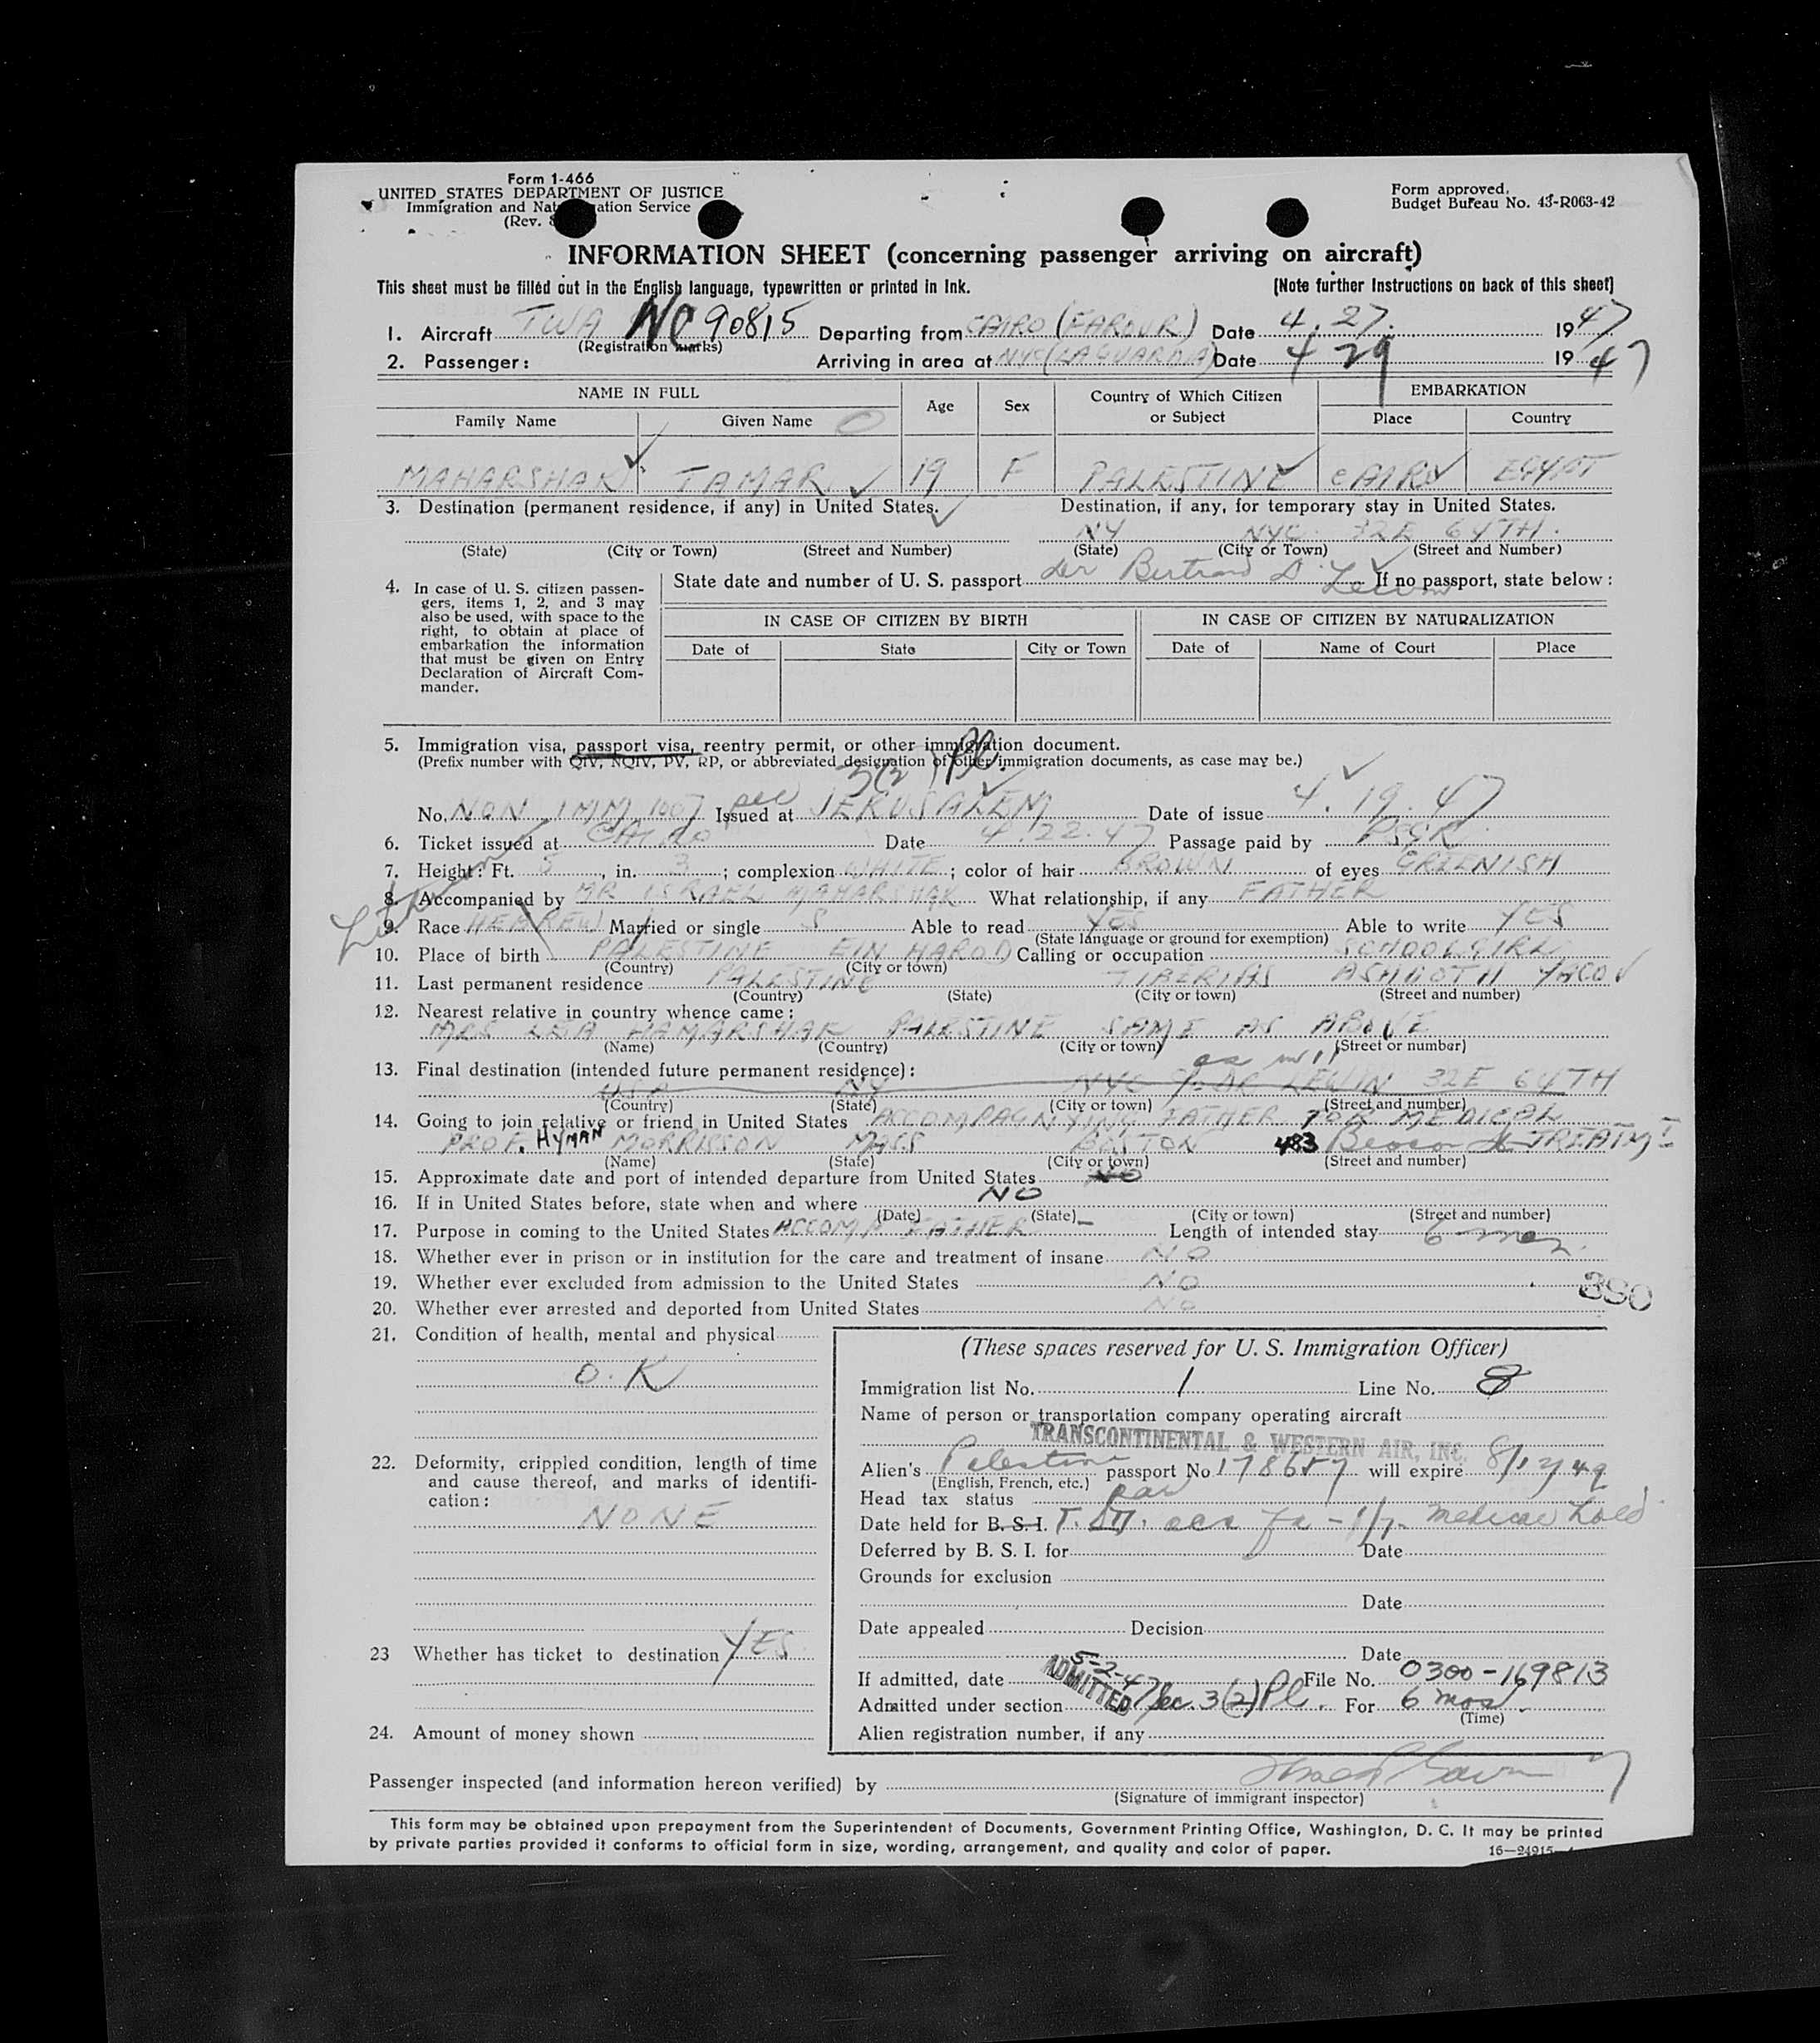 Form 1-466
UNITED STATES DEPARTMENT OF JUSTICE
Immigration and Naturalization Service
(Rev.
Form approved.
Budget Bureau No. 43-R063-42
INFORMATION SHEET (concerning passenger arriving on aircraft)
This sheet must be filled out in the English language, typewritten or printed in ink. (Note further Instructions on back of this sheet)
1. Aircraft TWA NC 90815 Departing from CAIRO (FAROUK) Date 4.27. 1947
(Registration marks)
2. Passenger: Arriving in area at NYC (LAGUARDIA) Date 4 29 1947
NAME IN FULL Age Sex Country of Which Citizen or Subject EMBARKATION
Family Name Given Name Place Country
MAHARSHAK TAMAR 19 F PALESTINE CAIRO EGYPT
3. Destination (permanent residence, if any) in United States. Destination, if any, for temporary stay in United States.
NY NYC 32E 64TH.
(State) (City or Town) (Street and Number) (State) (City or Town) (Street and Number)
4. In case of U. S. citizen passen-
gers, items 1, 2, and 3 may
also be used, with space to the
right, to obtain at place of
embarkation the information
that must be given on Entry
Declaration of Aircraft Com-
mander.
State date and number of U. S. passport Bertram D. Lewin If no passport, state below:
IN CASE OF CITIZEN BY BIRTH IN CASE OF CITIZEN BY NATURALIZATION
Date of State City or Town Date of Name of Court Place
5. Immigration visa, passport visa, reentry permit, or other immigration document.
(Prefix number with QIV, NQIV, PV, RP, or abbreviated designation of other immigration documents, as case may be.)
3(2) Pl.
No. NON IMM 1007 Issued at JERUSALEM Date of issue 4.19.47
6. Ticket issued at CAIRO Date 4.22.47 Passage paid by PSGR
7. Height: Ft. 5, in. 3; complexion WHITE; color of hair BROWN of eyes GREENISH
8. Accompanied by MR ISRAEL MAHARSHAK What relationship, if any FATHER
9. Race HEBREW Married or single S Able to read YES Able to write YES
(State language or ground for exemption)
10. Place of birth PALESTINE EIN HAROD Calling or occupation SCHOOLGIRL
(Country) (City or town)
11. Last permanent residence PALESTINE TIBERIAS ASHDOTH YACOV
(Country) (State) (City or town) (Street and number)
12. Nearest relative in country whence came:
MRS LEA HAMARSHAK PALESTINE SAME AS ABOVE
(Name) (Country) (City or town) (Street or number)
13. Final destination (intended future permanent residence):
USA NY NYC c/o DR LEWIN 32E 64TH
(Country) (State) (City or town) (Street and number)
14. Going to join relative or friend in United States ACCOMPAGNYING FATHER FOR MEDICAL
PROF. HYMAN MORRISSON MASS BOSTON 483 Beacon St TREATMT
(Name) (State) (City or town) (Street and number)
15. Approximate date and port of intended departure from United States NO
16. If in United States before, state when and where NO
(Date) (State) (City or town) (Street and number)
17. Purpose in coming to the United States ACCOMP. FATHER Length of intended stay 6 mos.
18. Whether ever in prison or in institution for the care and treatment of insane NO
19. Whether ever excluded from admission to the United States NO
20. Whether ever arrested and deported from United States NO
390
21. Condition of health, mental and physical
O.K
22. Deformity, crippled condition, length of time
and cause thereof, and marks of identifi-
cation:
NONE
23 Whether has ticket to destination YES
24. Amount of money shown
(These spaces reserved for U. S. Immigration Officer)
Immigration list No. 1 Line No. 8
Name of person or transportation company operating aircraft
TRANSCONTINENTAL & WESTERN AIR, INC.
Alien's Palestine passport No 178657 will expire 8/12/49
(English, French, etc.)
Head tax status
Date held for B. S. I. T. medical hold
Deferred by B. S. I. for Date
Grounds for exclusion
Date
Date appealed Decision
Date
If admitted, date 5-2-47 ADMITTED File No. 0300-169813
Admitted under section Sec. 3(2) Pl. For 6 mos.
(Time)
Alien registration number, if any
Passenger inspected (and information hereon verified) by
(Signature of immigrant inspector)
This form may be obtained upon prepayment from the Superintendent of Documents, Government Printing Office, Washington, D. C. It may be printed
by private parties provided it conforms to official form in size, wording, arrangement, and quality and color of paper.
16—24915